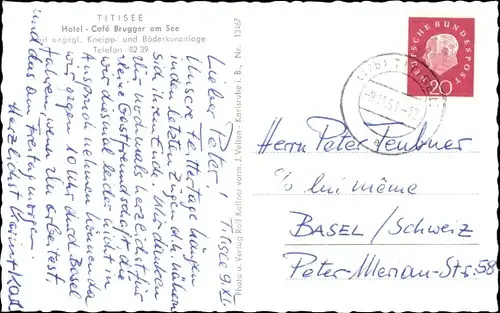 TITISEE
Hotel - Café Brugger am See
mit angegl. Kneipp- und Bäderkuranlage
Telefon 82 39
Titisee 9. XI.
Lieber Peter,
Unsere Feiertage hängen
in den letzten Zügen d.h. nähern
sich ihrem Ende. Wir danken
Dir nochmals herzlichst für
Deine Gastfreundschaft die
wir diesmal leider nicht in
Anspruch nehmen können da
wir gegen 10 Uhr durch Basel
fahren, wenn Du arbeitest.
und das am Freitag morgen.
Herzlichst
Photo u. Verlag Rolf Kellner vorm. J. Velten - Karlsruhe i. B., Nr. 13467
DEUTSCHE BUNDESPOST
20
Herrn Peter Teubner
c/o bei même
BASEL / Schweiz
Peter-Merian-Str. 58